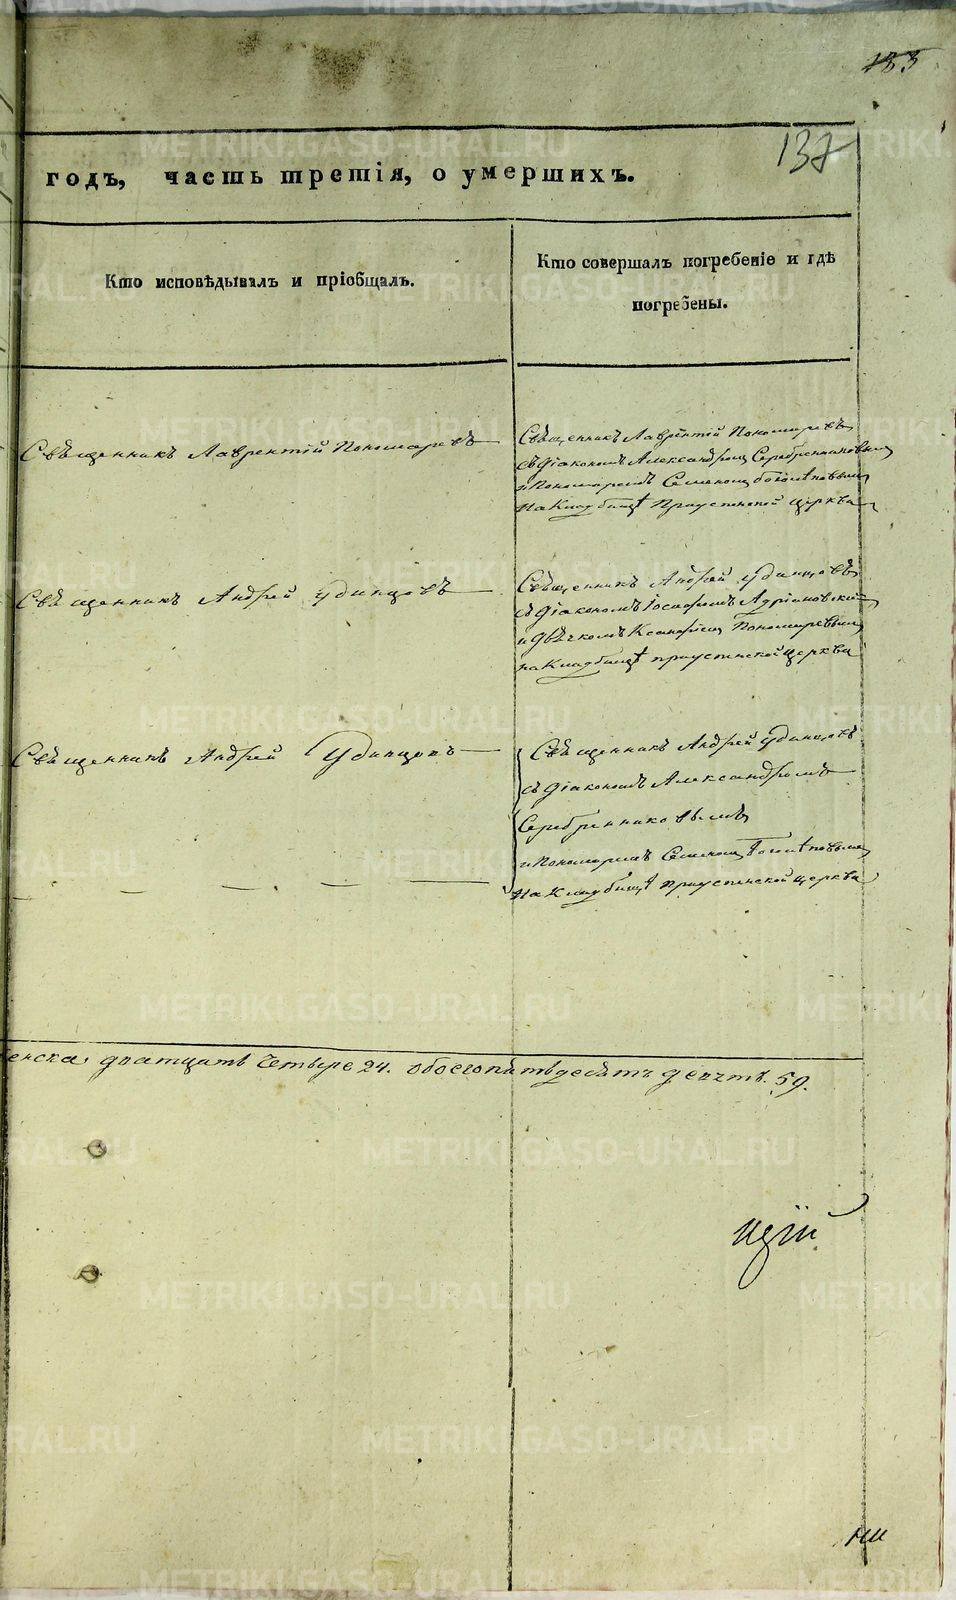 183
137
годъ, часть третія, о умершихъ.
Кто исповѣдывалъ и пріобщалъ.
Кто совершалъ погребеніе и гдѣ
погребены.
Священникъ Лаврентій Пономаревъ
Священникъ Лаврентій Пономаревъ
съ діакономъ Александромъ Серебренниковым
и Пономаремъ Семеномъ
на Кладбищѣ Приуспенской церкви
Священникъ Андрей Удинцовъ
Священникъ Андрей Удинцовъ
съ діакономъ Іосафомъ Адріановским
и дьячкомъ Ксенофон Пономаревым
на Кладбищѣ приуспенской церкви
Священникъ Андрей Удинцовъ
Священникъ Андрей Удинцовъ
съ діакономъ Александромъ
Серебренниковымъ
и Пономаремъ Семеномъ
на Кладбищѣ приуспенской церкви
женска. дватцать четыре 24. обоего пятьдесятъ девять. 59.
METRIKI.GASO-URAL.RU